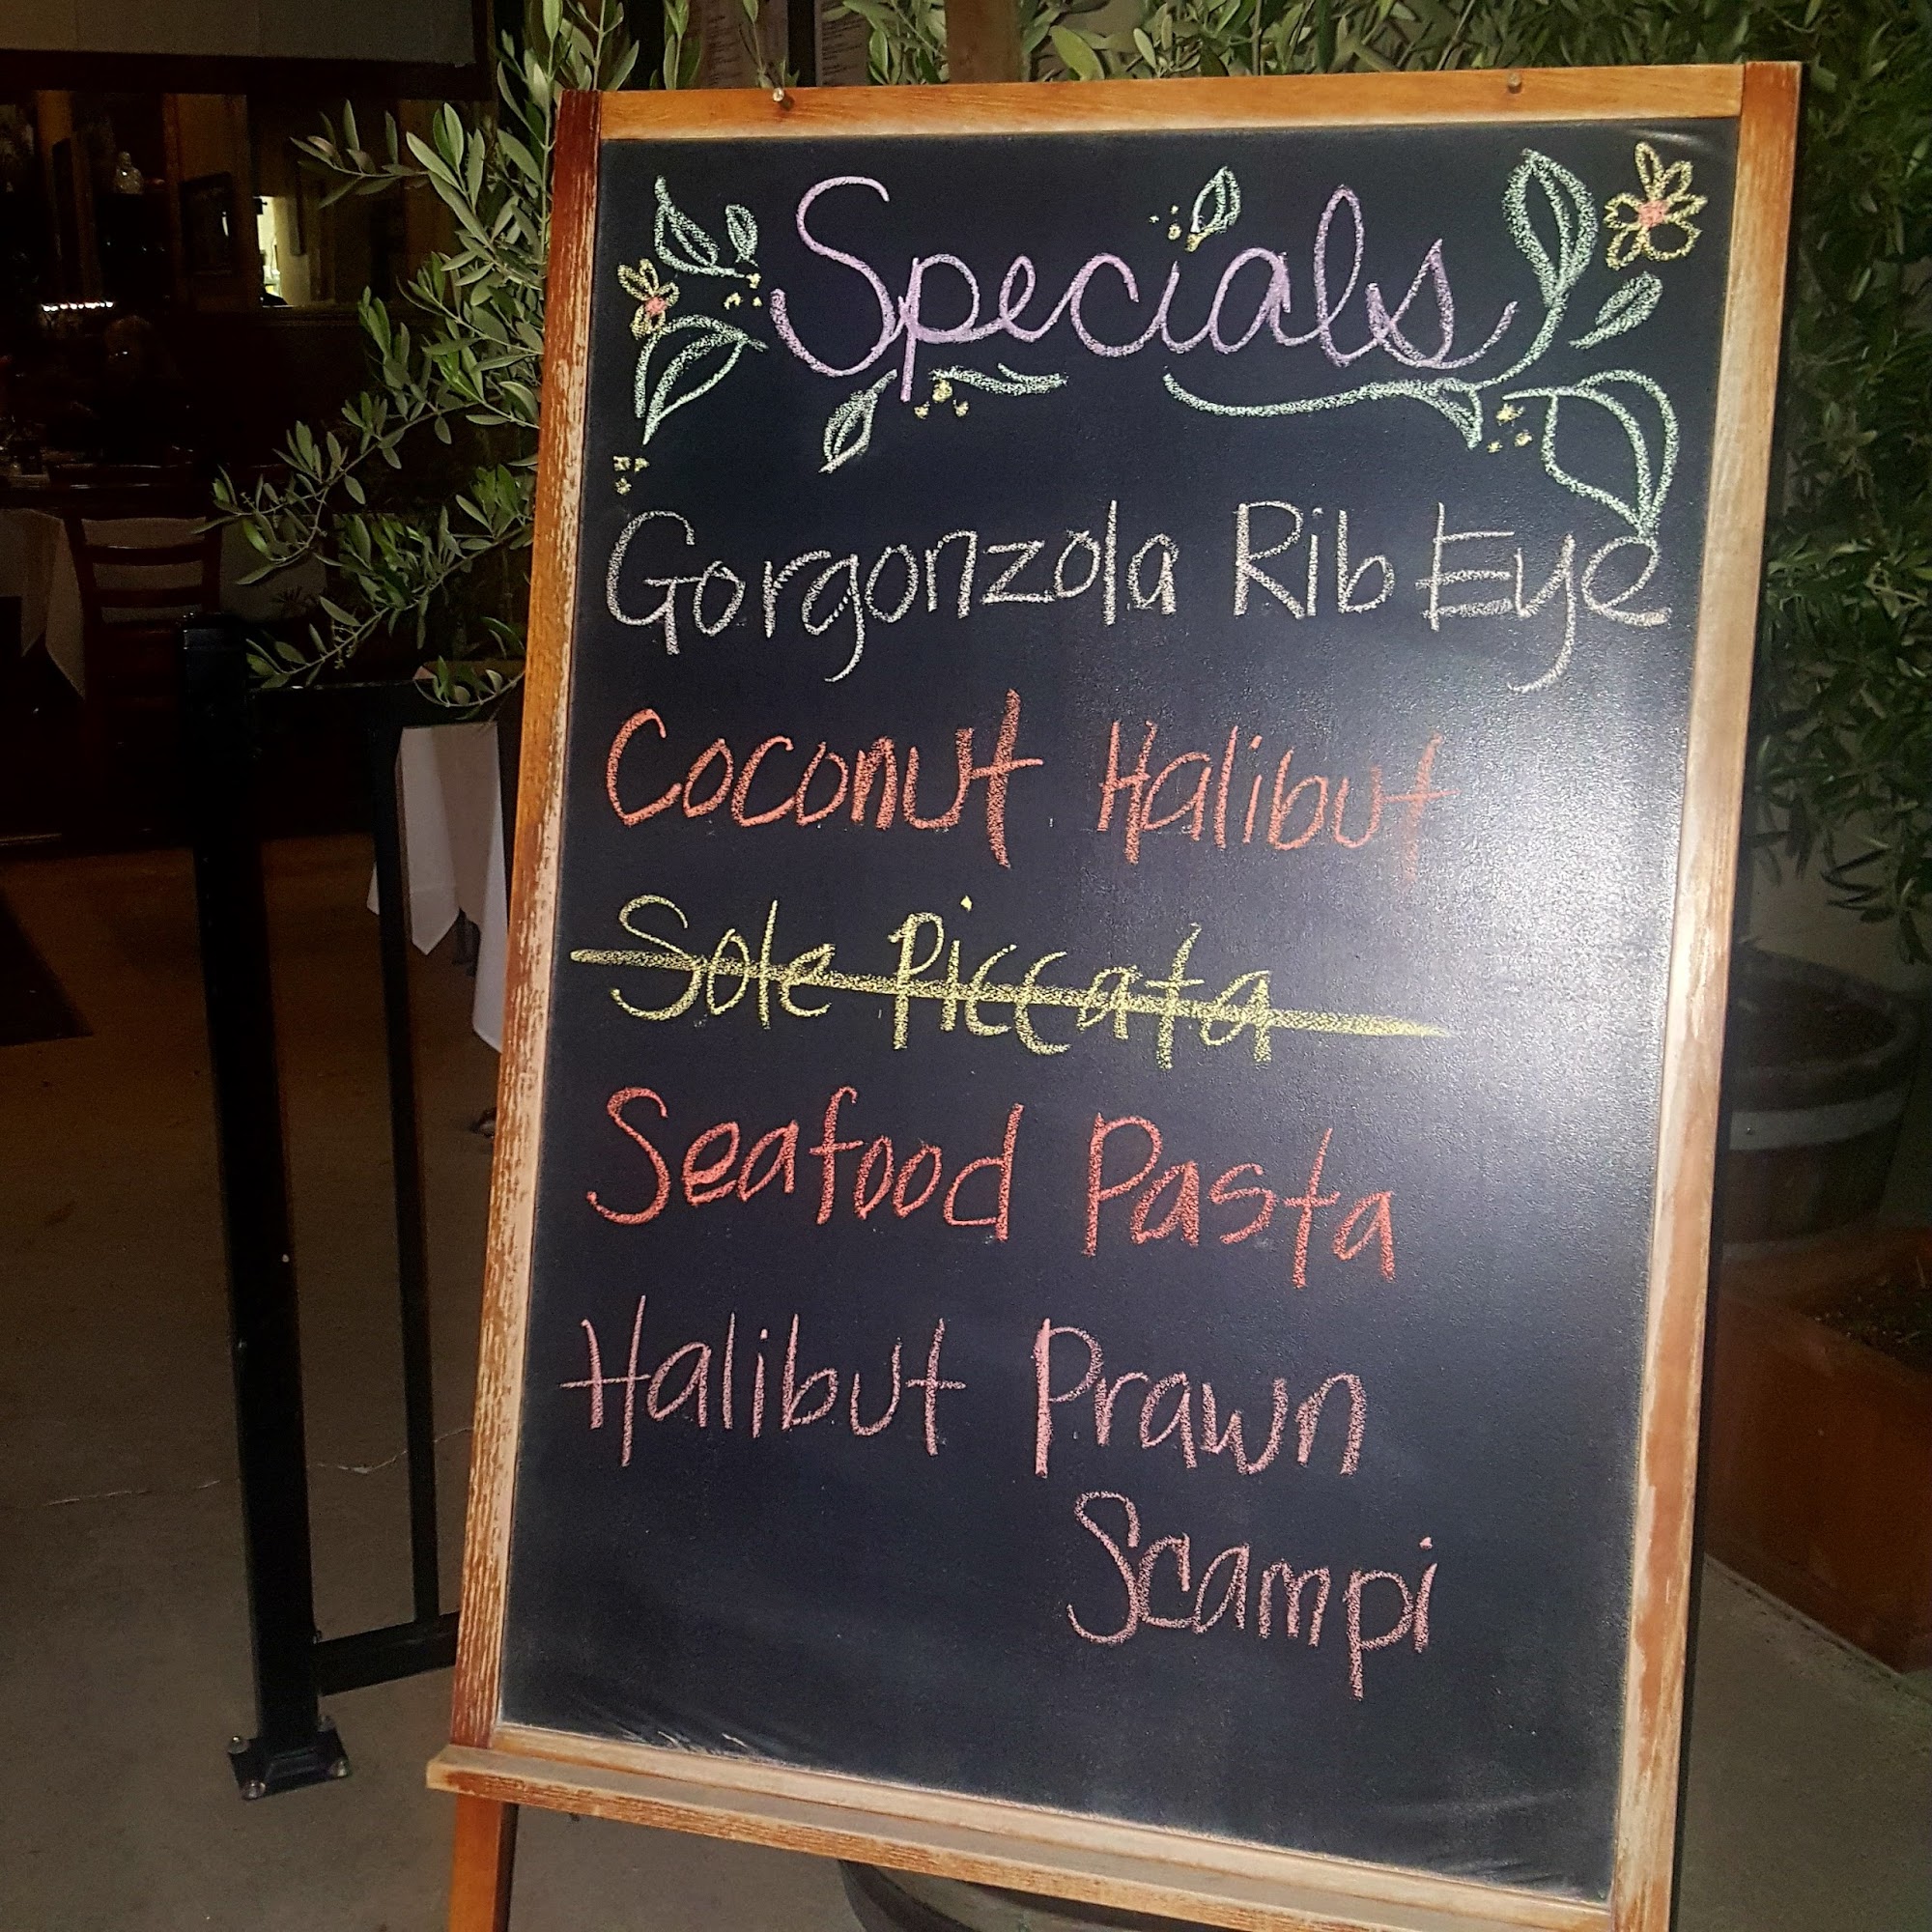 Specials
Gorgonzola Rib Eye
Coconut Halibut
Sole Piccata
Seafood Pasta
Halibut Prawn
Scampi